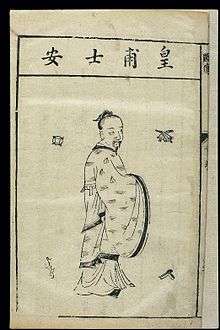 皇甫士安